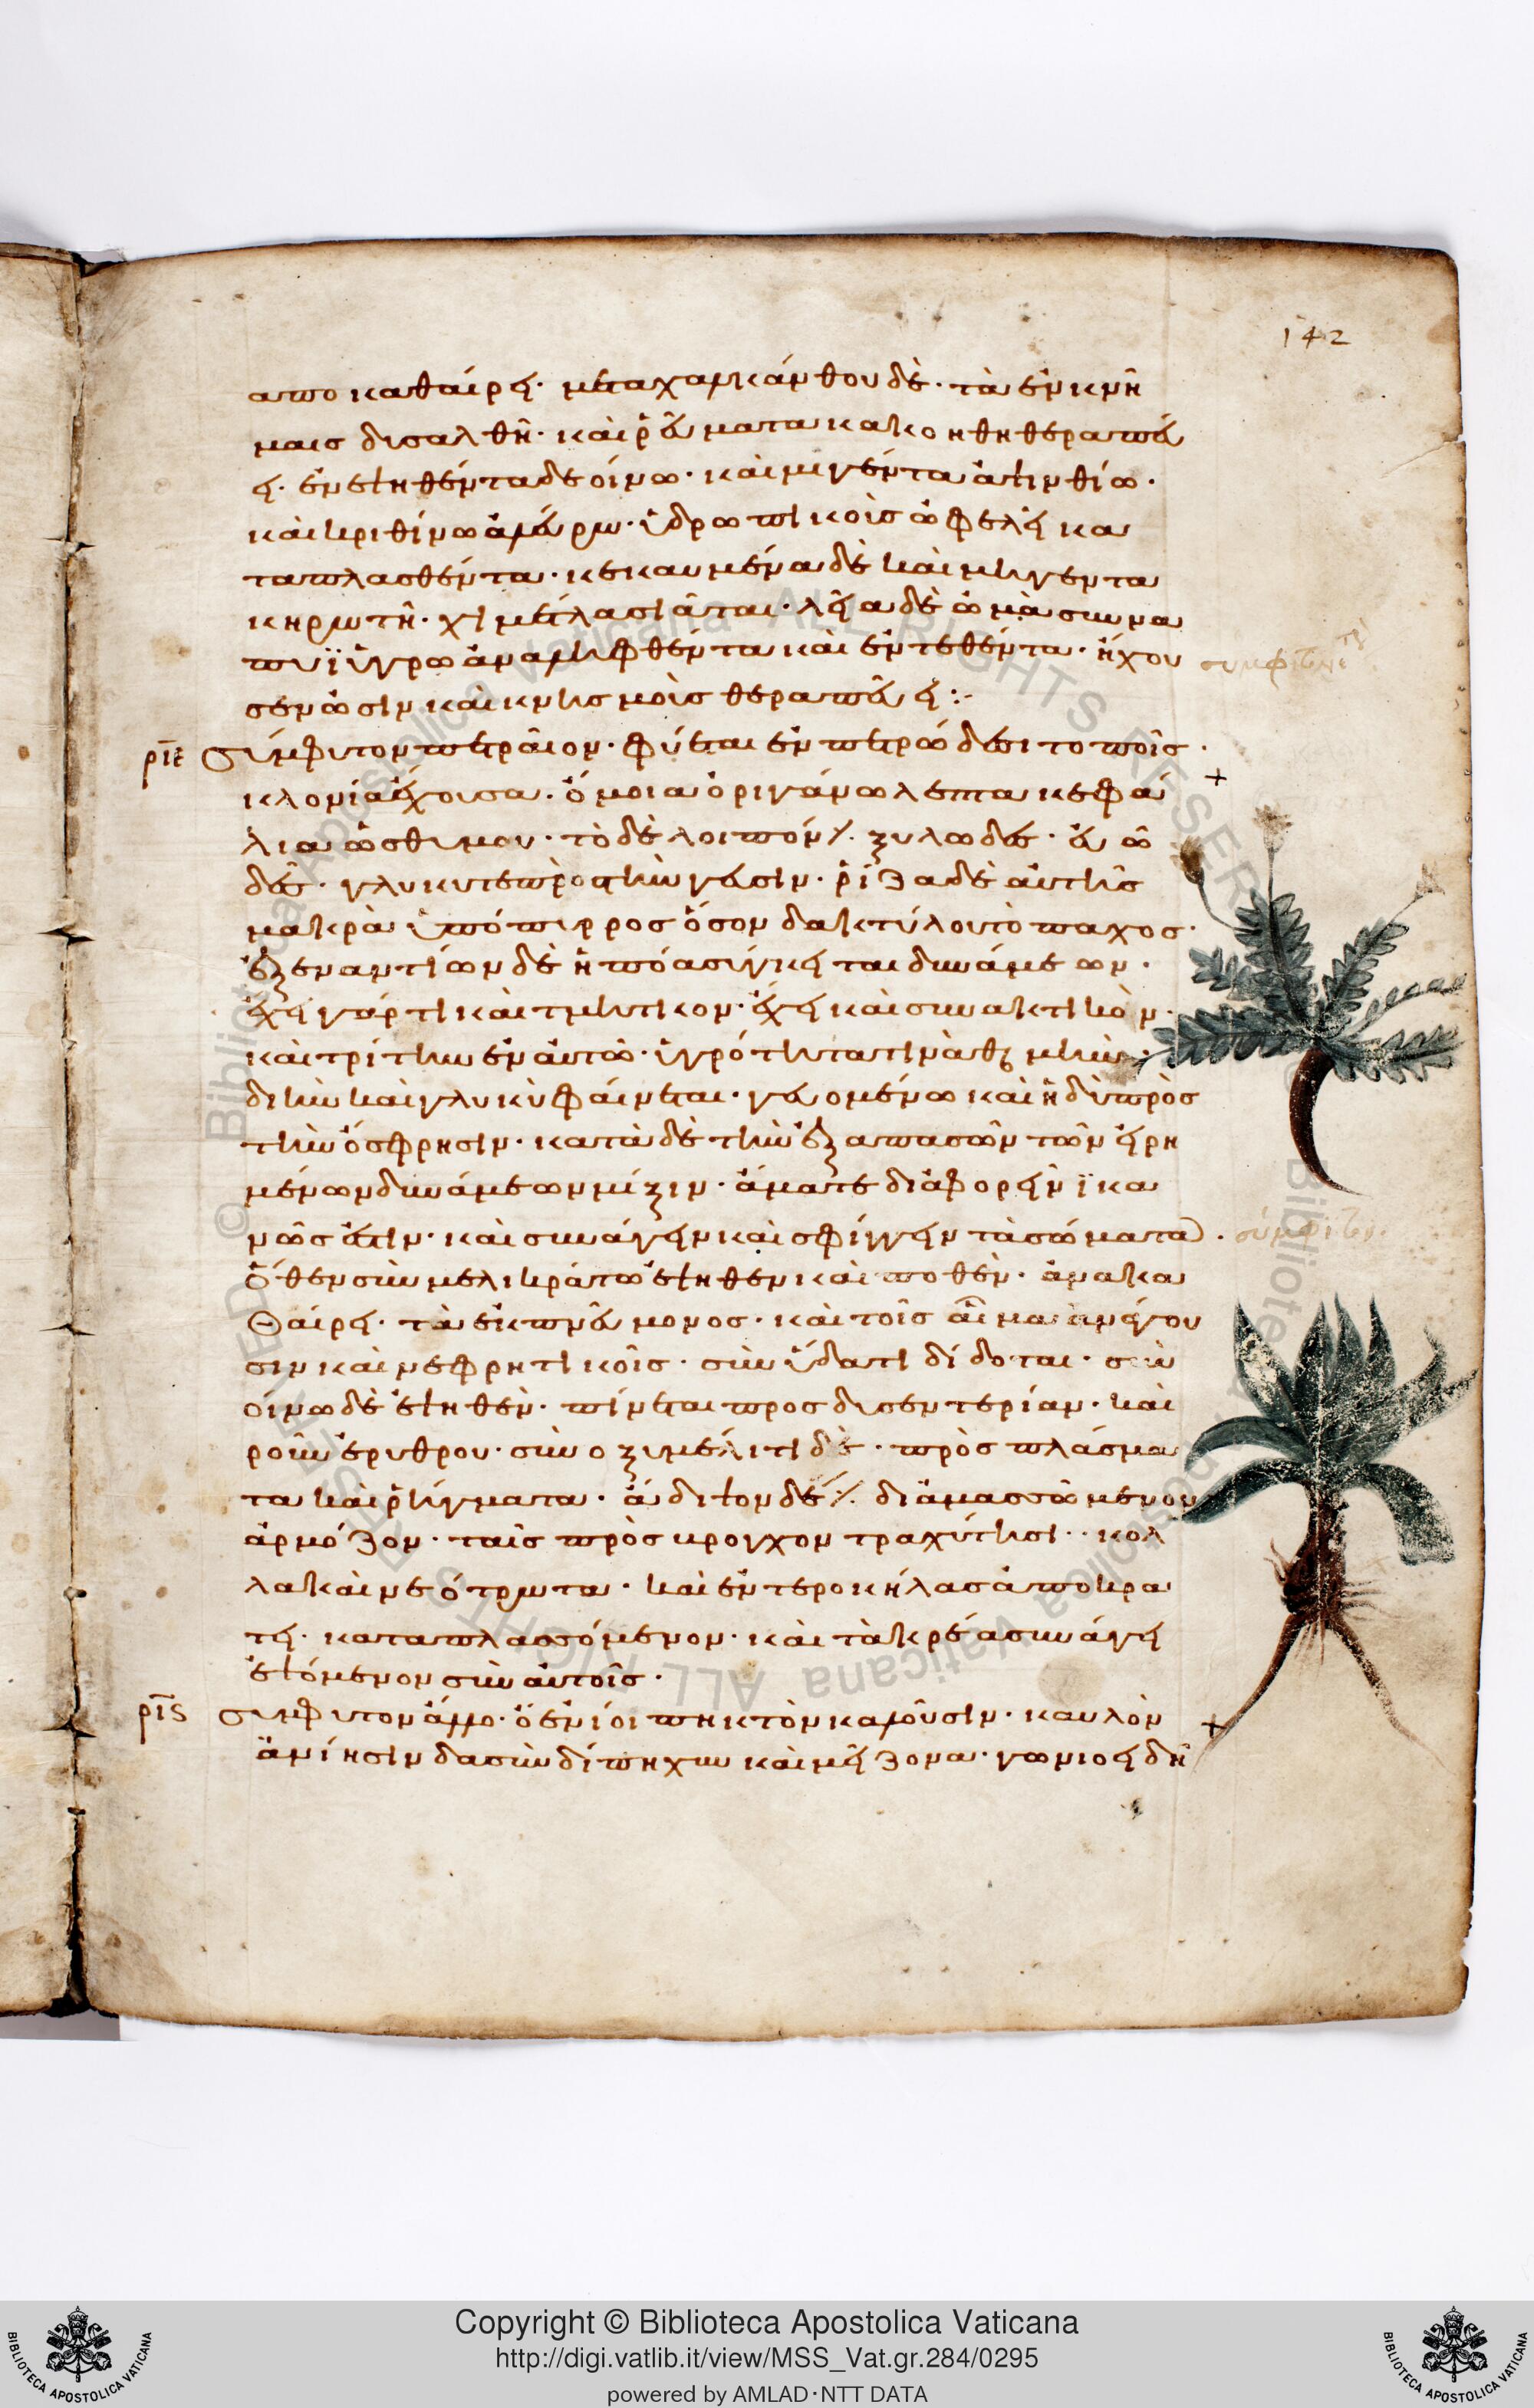 142
αποκαθαίρει· μετα χαλκάνθου δὲ· τὰ ἐν κνή
μαις δυσαλθῆ· καὶ ῥεύματα κακοήθη θεραπεύ
ει· ἐνεψηθέντα δε οίνω· καὶ μιγέντα ἀψινθίω·
καὶ κριθίνω ἀλεύρω· ὑδρωπικοὺς ὠφελεῖ κα
ταπλασθέντα· κεκαυμένα δὲ καὶ μιγέντα
κηρωτῆ· χιμετλα ἰᾶται· λεῖα δὲ ὠμὰ σὺν να
πυϊ ὑγρω ἀναληφθέντα καὶ ἐντεθέντα· ἤχου
σεν ὠσὶν καὶ κνησμοὶς θεραπεύει :-
συμφιτον πε
ριε σύμφυτον πετραῖον· φύεται ἐν πετρώδεσι τοποις·
κλονία ἔχουσα· ὅμοια ὀριγάνω λεπτα κεφά
λια ὡσ θυμου· τὸ δὲ λοιπόν ξυλωδες· εὐω
δες· γλυκυ τε πρὸς τὴν γεύσιν· ῥίζα δὲ αὐτῆς
μακρὰ ὑπόπυρρος ὅσον δακτύλου τὸ παχος·
ἐξ εναντίων δὲ ἡ πόα σύγκειται δυνάμεων·
ἔχει γάρ τι καὶ τμητικον· ἔχει καὶ συνακτικὸν·
καὶ τρίτην ἐν ἀυτῶ· ὑγρότητα τινὰ θερμὴν·
δι ἣν καὶ γλυκὺ φαίνεται· γευομένω καὶ ἡδὺ πρὸς
τὴν ὄσφρησιν· κατὰ δὲ τὴν ἐξ απασῶν τῶν ἐιρη
μένων δυνάμεων μίξιν· ἅμα τε διαφορεῖν ϊκα
νῶς ἐστιν· καὶ συνάγειν καὶ σφίγγειν τὰ σώματα·
σύμφιτον·
ὅθεν σὺν μελικράτω ἑψηθεν καὶ ποθὲν· ἀνακα
θαίρει· τὰ ἐκ πνεύμονος· καὶ τοῖς αἷμα ἀνάγου
σιν καὶ νεφρητικοῖς· σὺν ὕδατι δίδοται· σὺν
οίνω δὲ ἑψηθὲν· πίνεται προς δυσεντερίαν· καὶ
ροῦν ἐρυθρον· σὺν οξυμέλιτι δὲ· πρὸς πλάσμα
τα καὶ ῥήγματα· ἄδιψον δέ διαμασσώμενον
ἁρμόζον· ταῖς πρὸς βρογχον τραχύτησι·· κολ
λα καὶ νεότρωτα· καὶ ἐντεροκήλας ἀποκρα
τεῖ· καταπλασσόμενον· καὶ τὰ κρέα συνάγει
ἑψόμενον σὺν αὐτοῖς·
ρις συμφυτον ἄλλο· ὃ ἔνιοι πηκτὸν καλοῦσιν· καυλὸν
ἀνίησιν δασὺν δίπηχυν καὶ μείζονα· γωνιοειδῆ
Copyright © Biblioteca Apostolica Vaticana
http://digi.vatlib.it/view/MSS_Vat.gr.284/0295
powered by AMLAD·NTT DATA
BIBLIOTECA APOSTOLICA VATICANA
BIBLIOTECA APOSTOLICA VATICANA